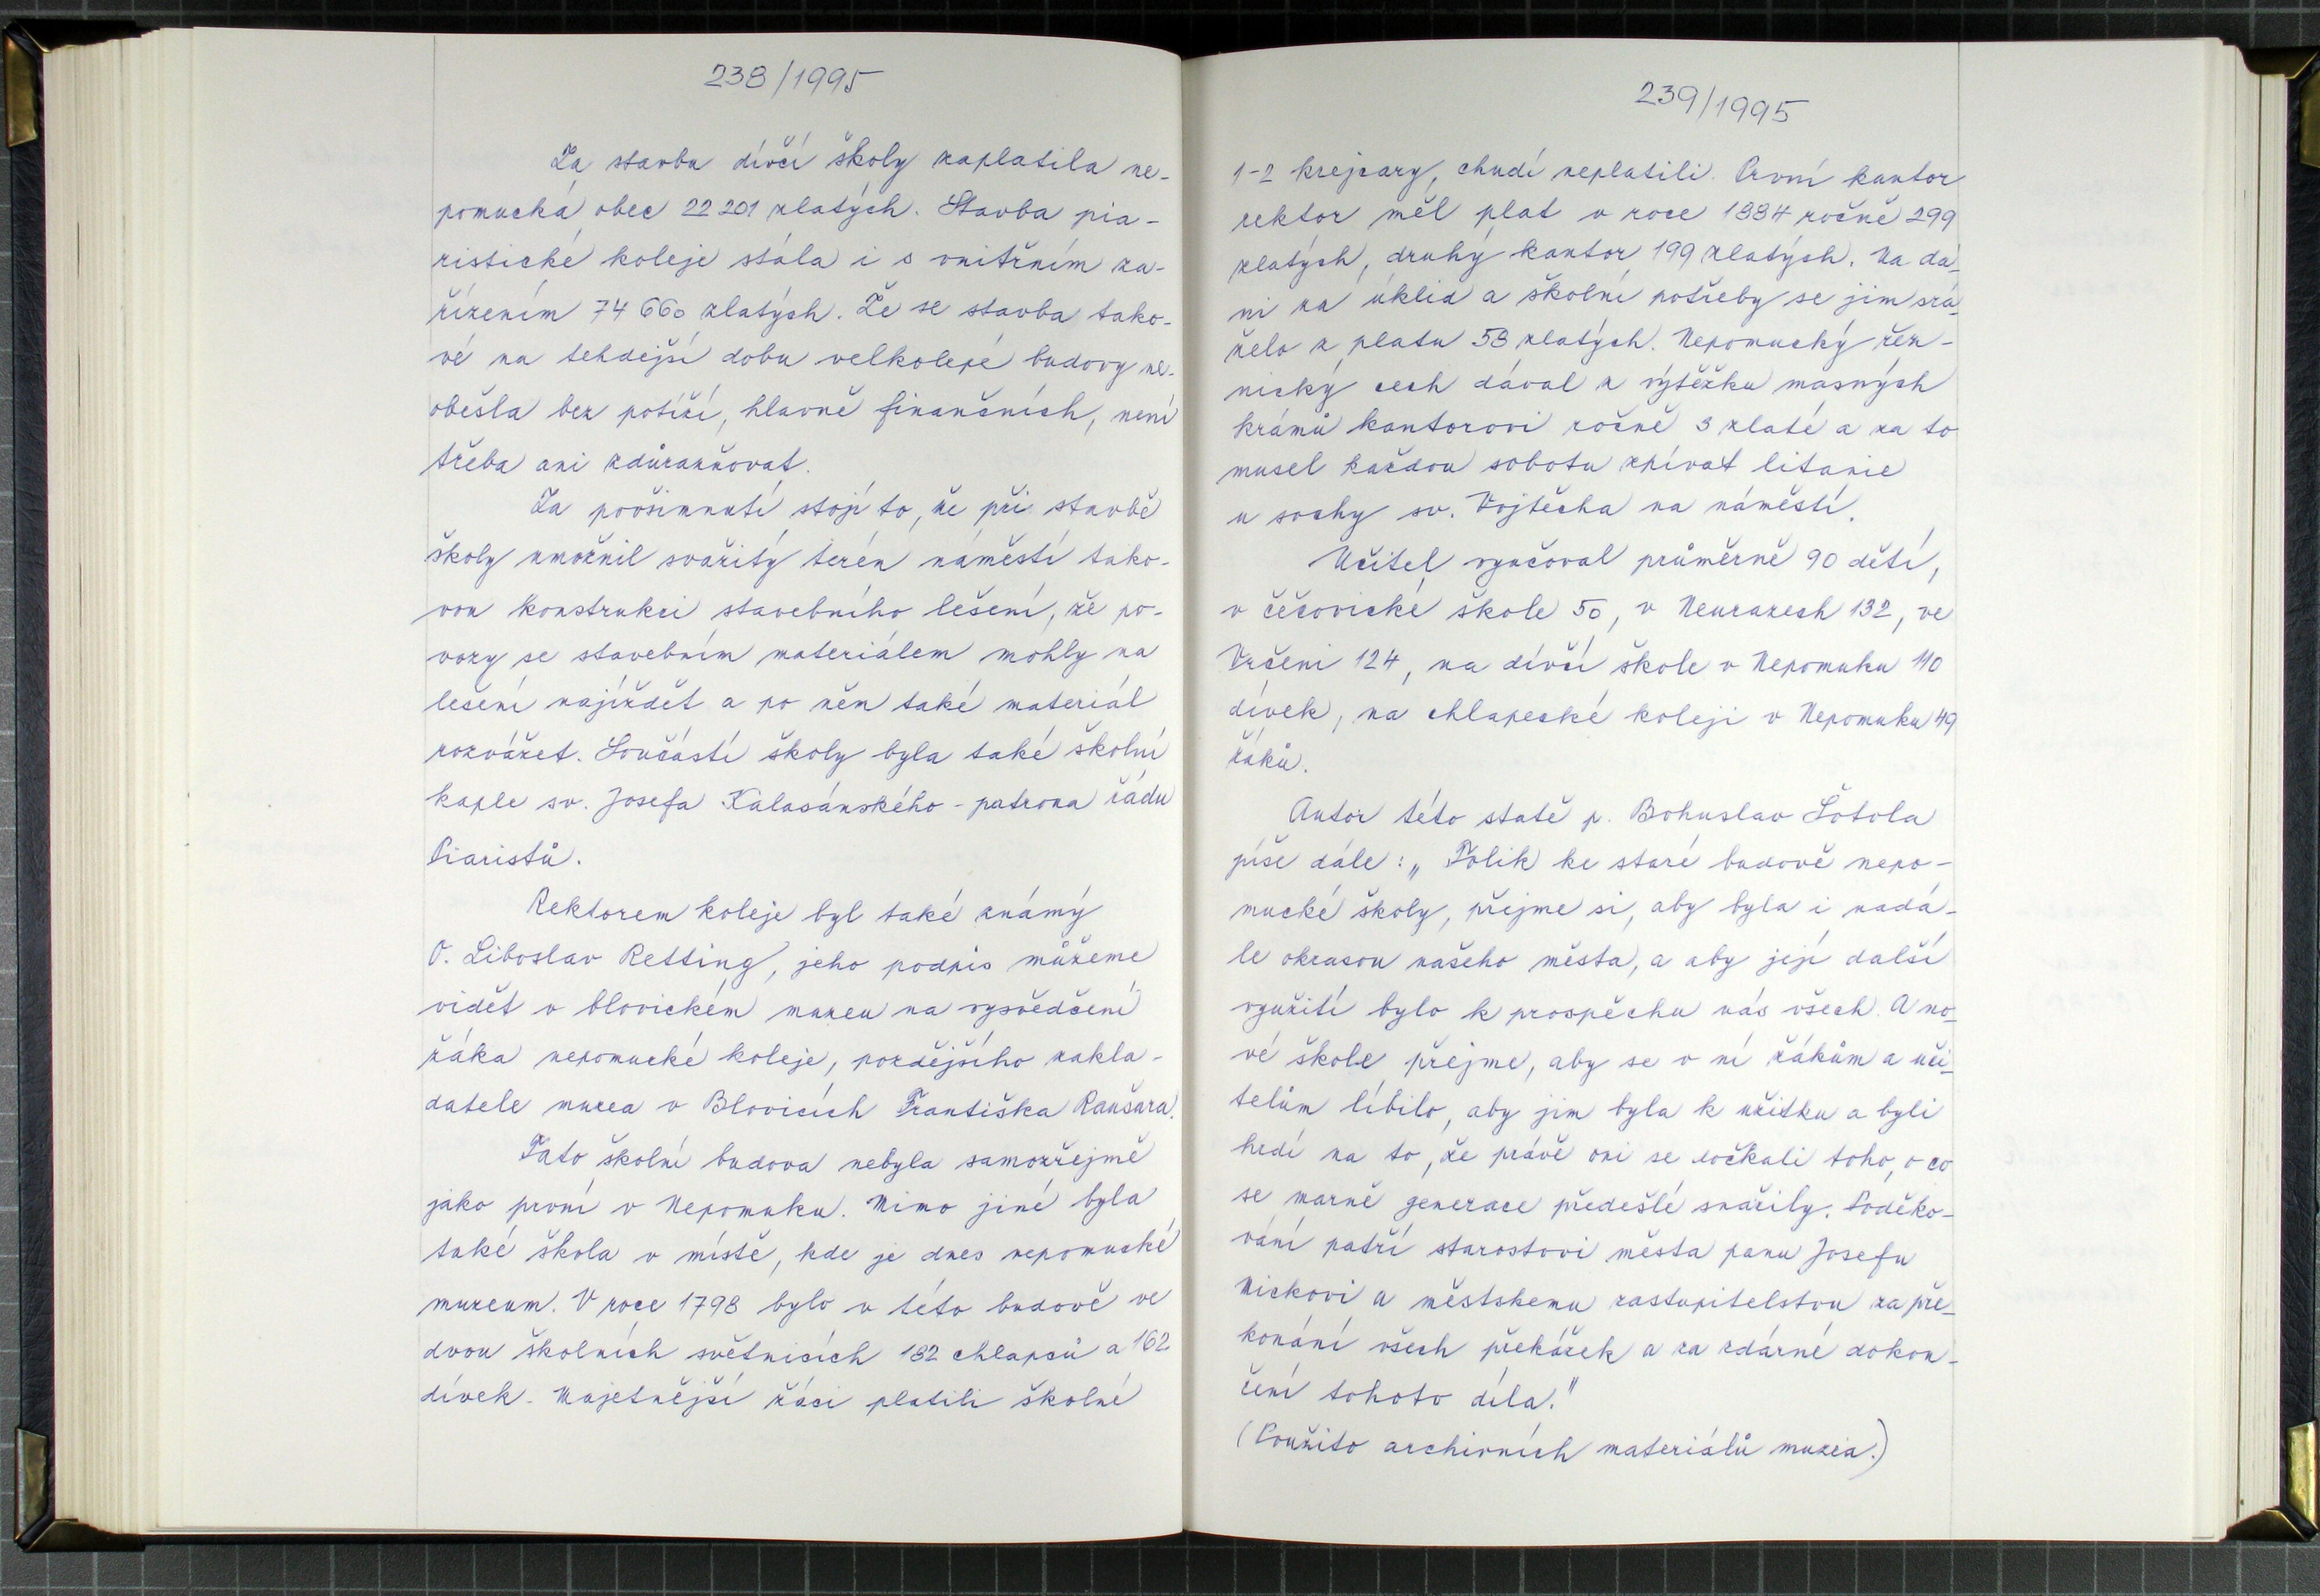 238/1995
Za stavbu dívčí školy zaplatila ne-
pomucká obec 22 201 zlatých. Stavba pia-
ristické koleje stála i s vnitřním za-
řízením 74 660 zlatých. Že se stavba tako-
vé na tehdejší dobu velkolepé budovy ne-
obešla bez potíží, hlavně finančních, není
třeba ani zdůrazňovat.
Za povšimnutí stojí to, že při stavbě
školy umožnil svažitý terén náměstí tako-
vou konstrukci stavebního lešení, že po-
vozy se stavebním materiálem mohly na
lešení najíždět a po něm také materiál
rozvážet. Součástí školy byla také školní
kaple sv. Josefa Kalasánského - patrona řádu
Piaristů.
Rektorem koleje byl také známý
P. Liboslav Retting, jeho podpis můžeme
vidět v blovickém muzeu na vysvědčení
žáka nepomucké koleje, pozdějšího zakla-
datele muzea v Blovicích Františka Raušara.
Tato školní budova nebyla samozřejmě
jako první v Nepomuku. Mimo jiné byla
také škola v místě, kde je dnes nepomucké
muzeum. V roce 1798 bylo v této budově ve
dvou školních světnicích 182 chlapců a 162
dívek. Majetnější žáci platili školné
239/1995
1-2 krejcary, chudí neplatili. První kantor
rektor měl plat v roce 1884 ročně 299
zlatých, druhý kantor 199 zlatých. Na da-
ni za úklid a školní potřeby se jim srá-
želo z platu 58 zlatých. Nepomucký řez-
nický cech dával z výtěžku masných
krámů kantorovi ročně 3 zlaté a za to
musel každou sobotu zpívat litanie
u sochy sv. Vojtěcha na náměstí.
Učitel vyučoval průměrně 90 dětí,
v čečovické škole 50, v Neurazech 132, ve
Vrčeni 124, na dívčí škole v Nepomuku 110
dívek, na chlapecké koleji v Nepomuku 49
žáků.
Autor této statě p. Bohuslav Šotola
píše dále: „Tolik ke staré budově nepo-
mucké školy, přejme si, aby byla i nadá-
le okrasou našeho města, a aby její další
využití bylo k prospěchu nás všech. A no-
vé škole přejme, aby se v ní žákům a uči-
telům líbilo, aby jim byla k užitku a byli
hrdí na to, že právě oni se dočkali toho, o co
se marně generace předešlé snažily. Poděko-
vání patří starostovi města panu Josefu
Mickovi a městskemu zastupitelstvu za pře-
konání všech překážek a za zdárné dokon-
čení tohoto díla."
(Použito archivních materiálů muzea.)